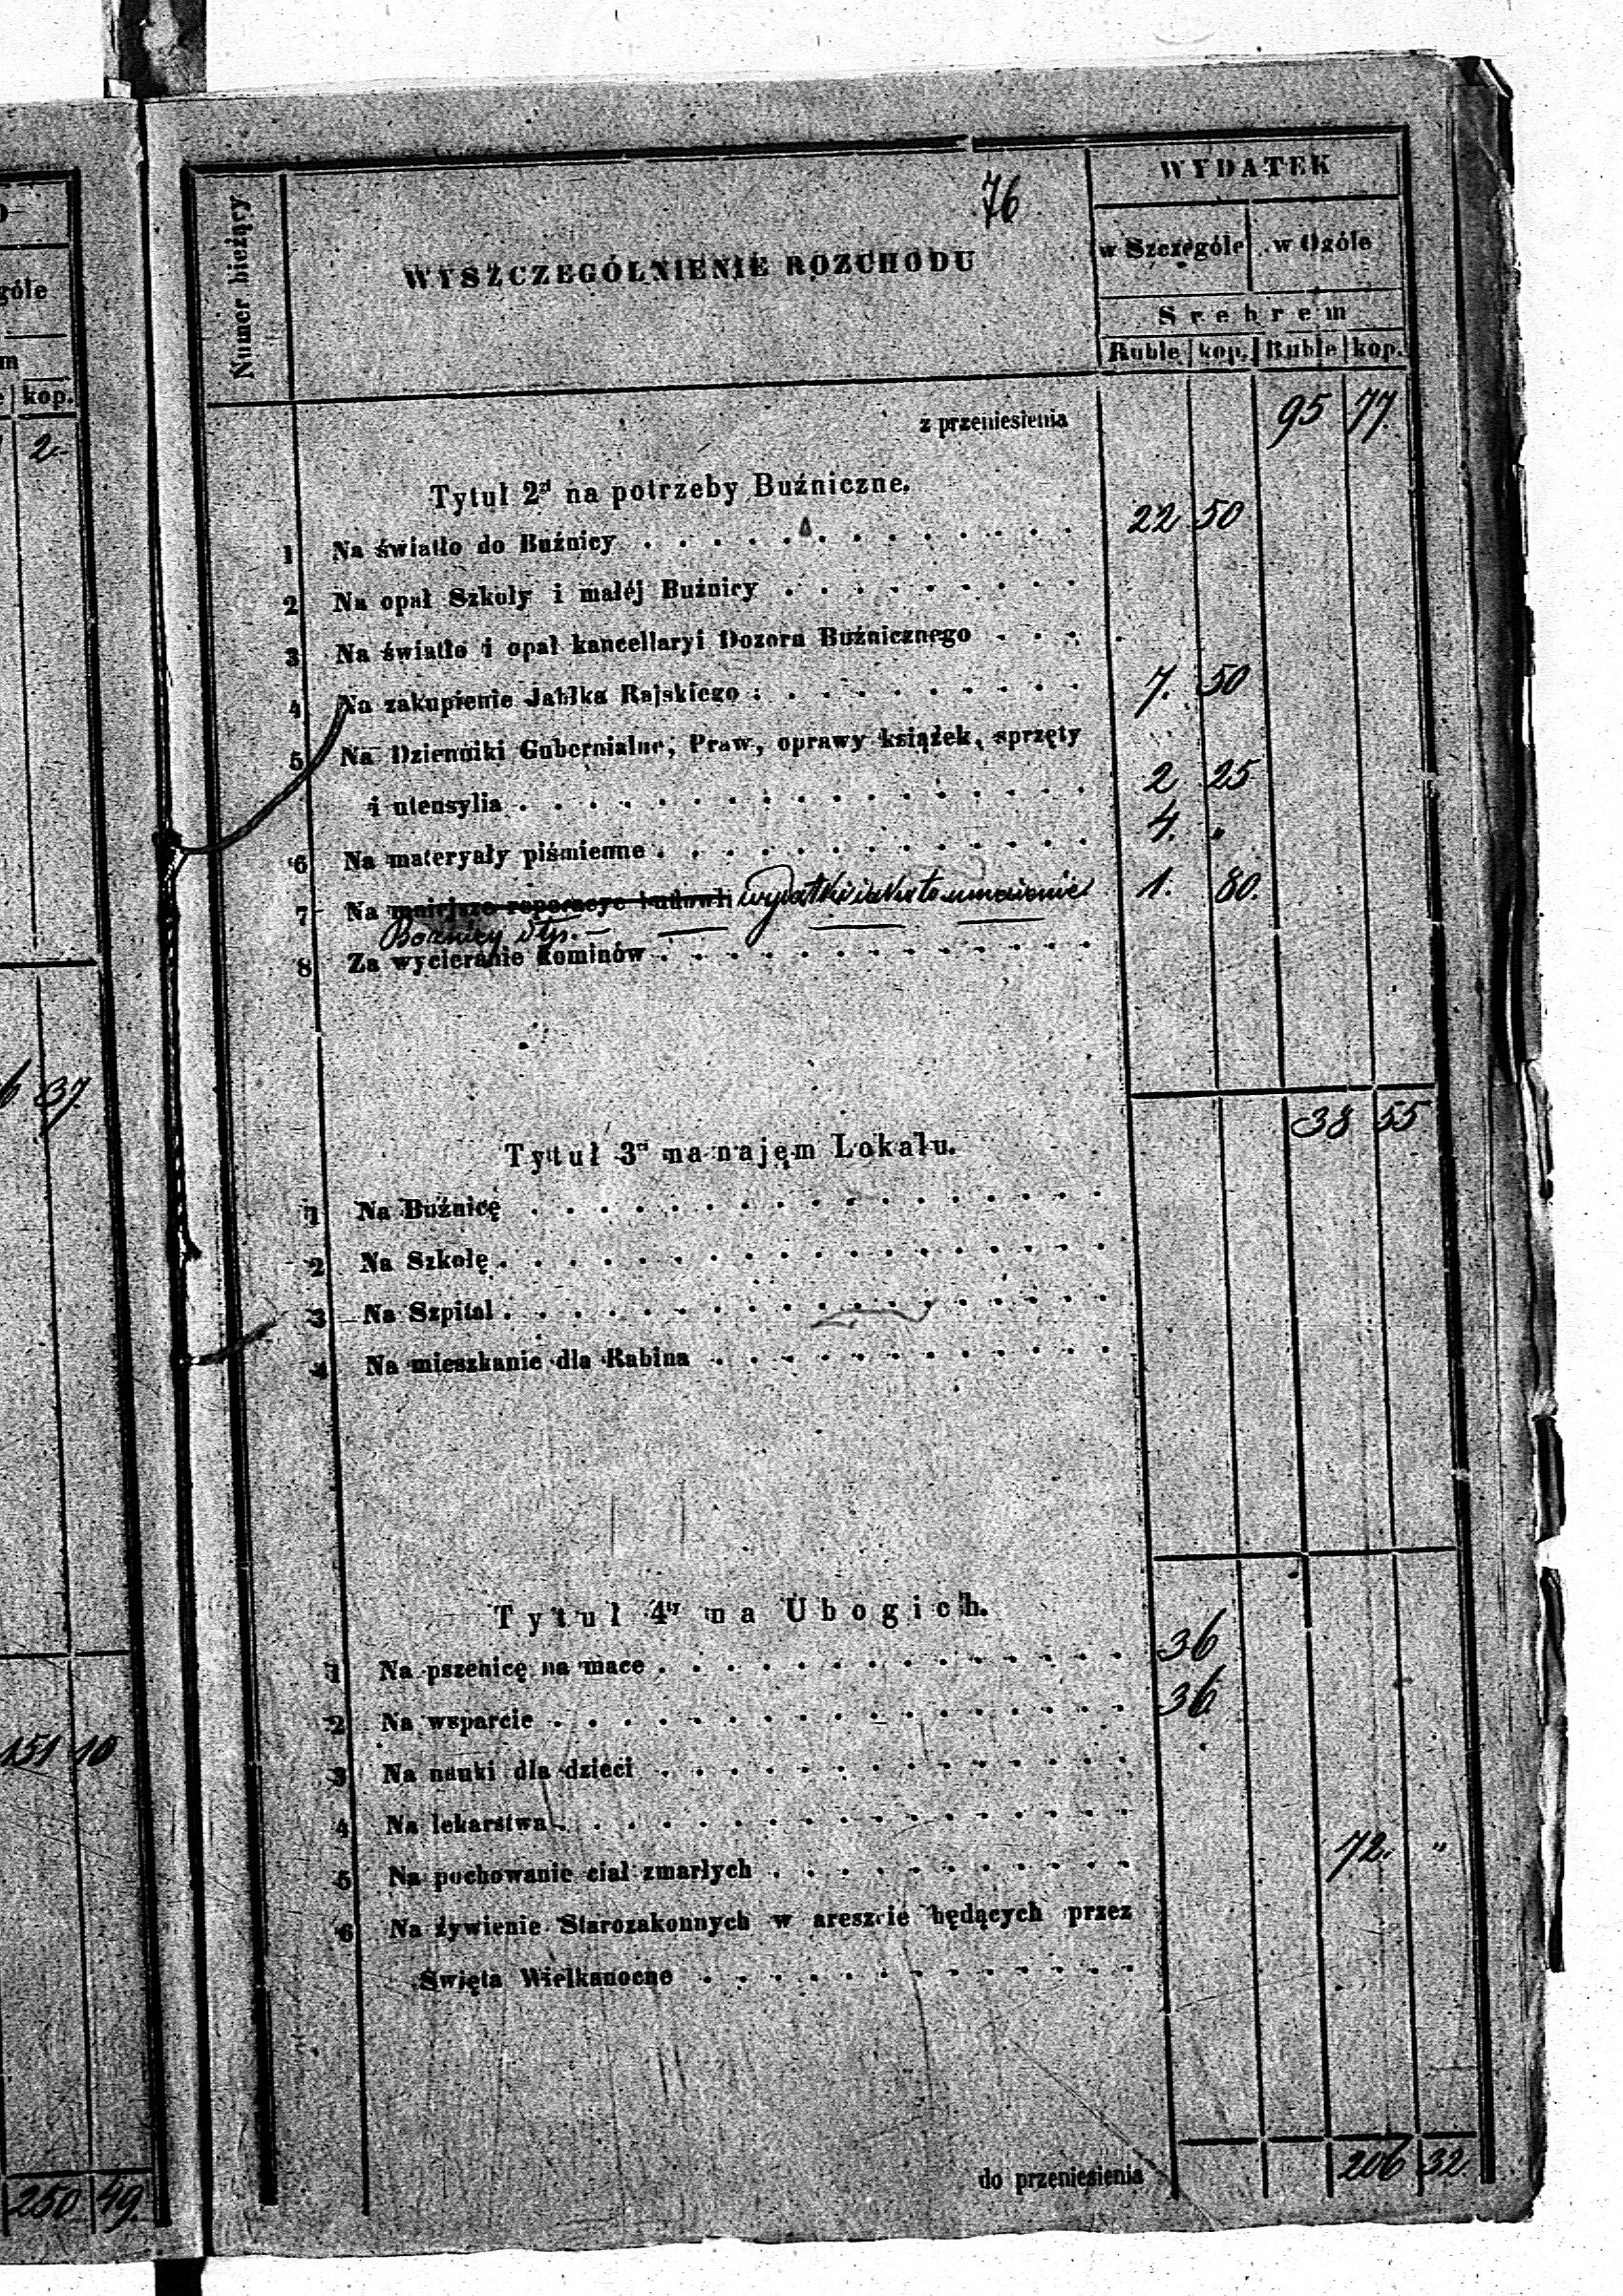 76
WYDATEK
Numer bieżący
WYSZCZEGÓLNIENIE ROZCHODU
w Szczególe w Ogóle
Srebrem
Ruble kop. Ruble kop.
z przeniesienia 95 77
Tytuł 2gi na potrzeby Buźniczne.
1 Na światło do Buźnicy 22 50
2 Na opał Szkoły i małéj Buźnicy
3 Na światło i opał kancellaryi Dozoru Buźnicznego
4 Na zakupienie Jabłka Rajskiego 7. 50
5 Na Dzienniki Gubernialne, Praw, oprawy książek, sprzęty
i utensylia 2 25
6 Na materyały piśmienne 4. "
7 Na mniejsze reperacye budowli wydatki iako to umaienie 1. 80.
Bożnicy itp.
8 Za wycieranie kominów
38 55
Tytuł 3ci na najęm Lokalu.
1 Na Buźnicę
2 Na Szkołę
3 Na Szpital
4 Na mieszkanie dla Rabina
Tytuł 4ty na Ubogich.
1 Na pszenicę na mace 36
2 Na wsparcie 36
3 Na nauki dla dzieci
4 Na lekarstwa
5 Na pochowanie ciał zmarłych 72. "
6 Na żywienie Starozakonnych w areszcie będących przez
Święta Wielkanocne
do przeniesienia 206 32
góle
m
kop.
2.
37
151 10
250 49.